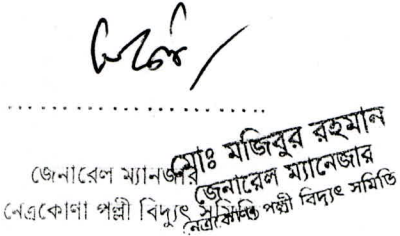 ..............................
জেনারেল ম্যানেজার
নেত্রকোণা পল্লী বিদ্যুৎ সমিতি
মোঃ মজিবুর রহমান
জেনারেল ম্যানেজার
নেত্রকোণা পল্লী বিদ্যুৎ সমিতি